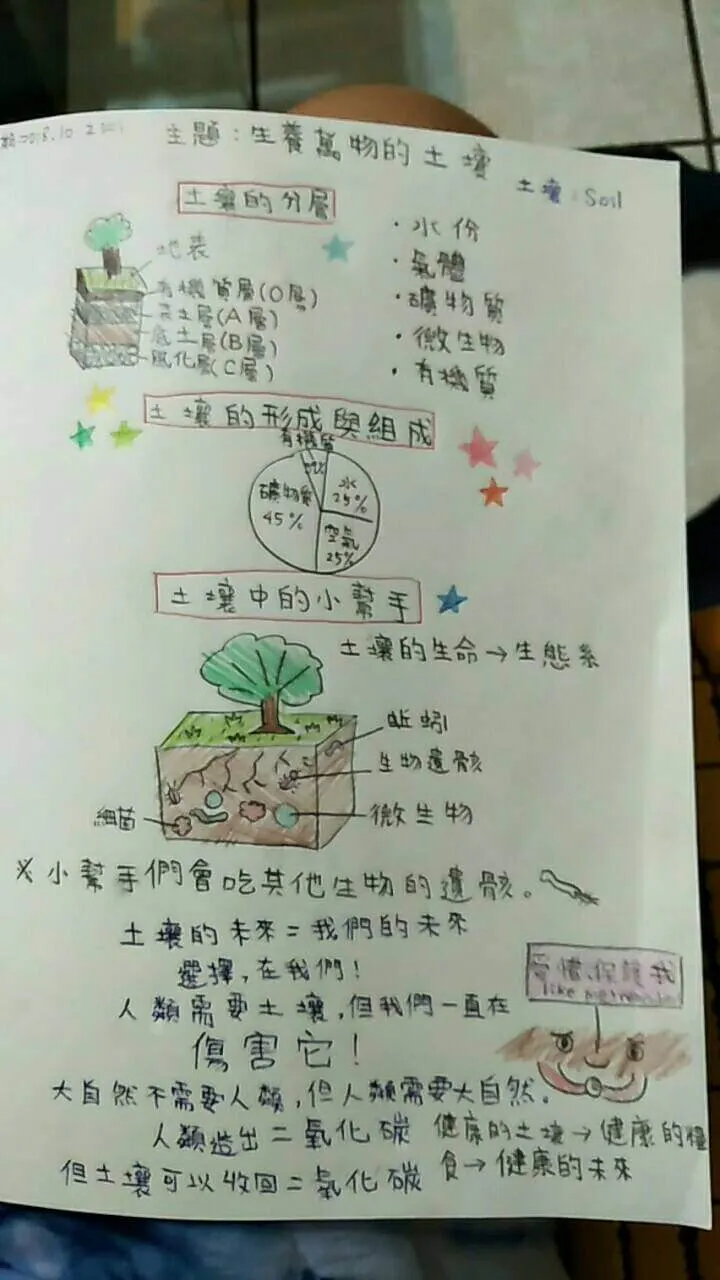 主題:生養萬物的土壤
土壤:Soil
土壤的分層
地表
有機質層(O層)
表土層(A層)
底土層(B層)
風化層(C層)
・水份
・氣體
・礦物質
・微生物
・有機質
土壤的形成與組成
有機質
水
25%
礦物質
45%
空氣
25%
土壤中的小幫手
土壤的生命→生態系
蚯蚓
生物遺骸
微生物
細菌
※小幫手們會吃其他生物的遺骸。
土壤的未來=我們的未來
選擇,在我們!
人類需要土壤,但我們一直在
傷害它!
愛惜、保護我
like me
大自然不需要人類,但人類需要大自然。
人類造出二氧化碳
但土壤可以收回二氧化碳
健康的土壤→健康的糧
食→健康的未來